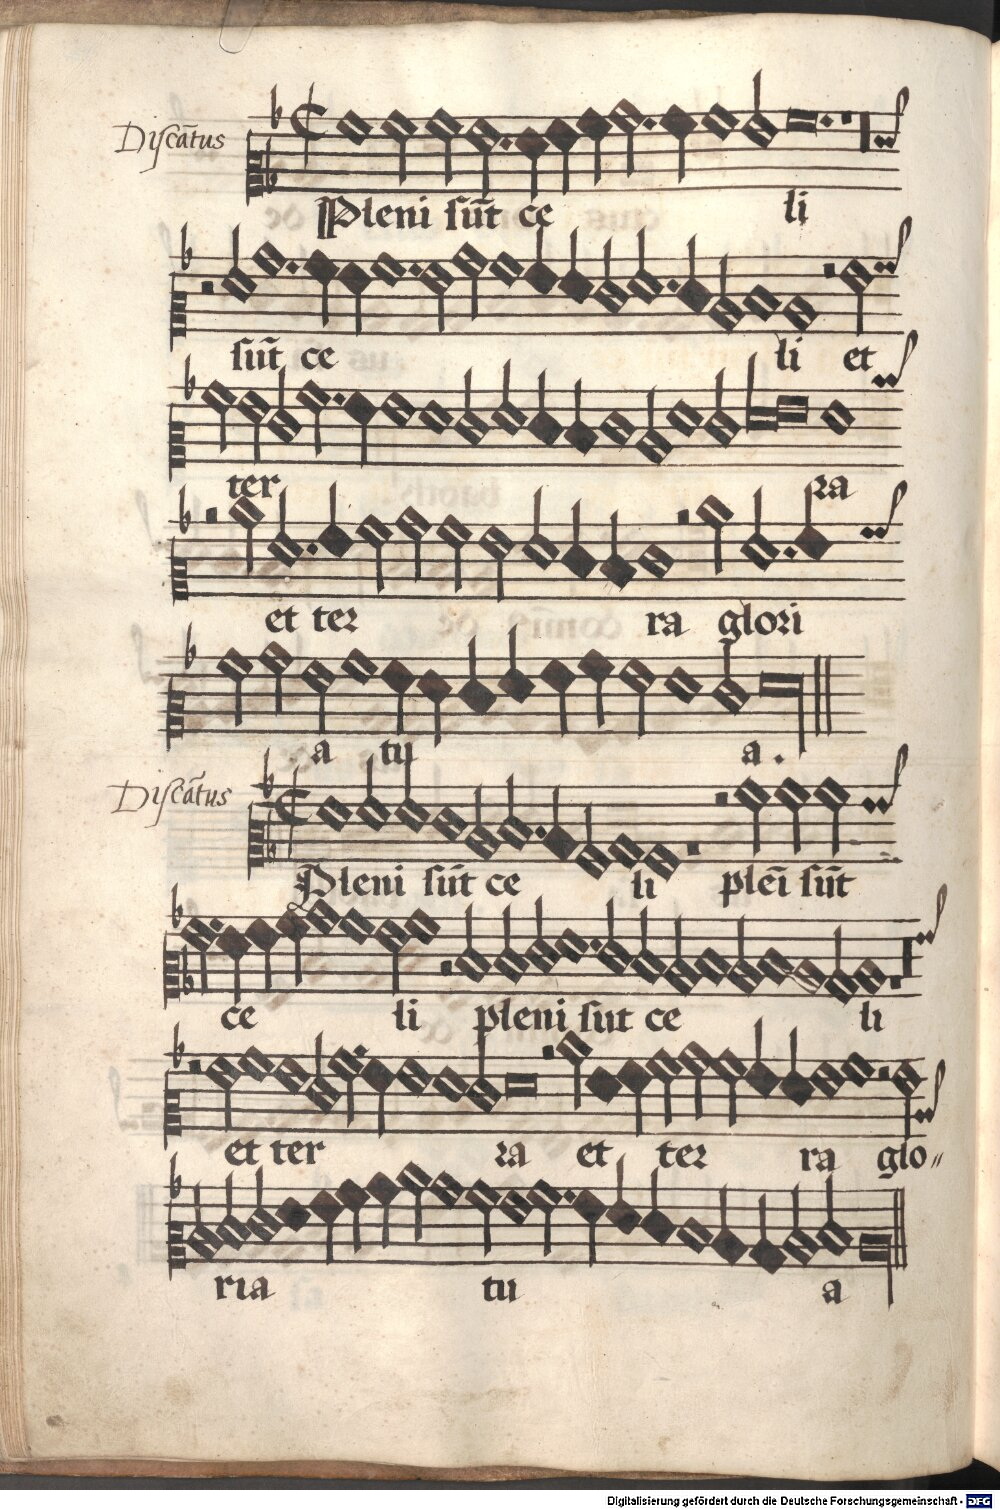 Discātus
Pleni sūt ce li
sūt ce li et
ter ra
et ter ra glori
a tu a.
Discātus
Pleni sūt ce li plēi sūt
ce li pleni sut ce li
et ter ra et ter ra glo〃
ria tu a
Digitalisierung gefördert durch die Deutsche Forschungsgemeinschaft - DFG